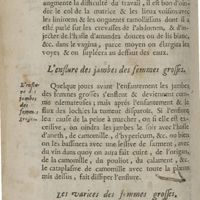 augmente la difficulté du travail, il est bon d'oin-
dre le col de la matrice & les lieux voisins avec
les liniments & les onguents ramollissans dont il a esté
parlé sur les crevasses de l'abdomen, & d'in-
jecter de l'huile d'amandes douces ou de lis blanc,
&c. dans le vagin, parce moyen on élargira les
voyes & on suplera au deffaut des eaux.
L'enflure des jambes des femmes grosses.
L'enflure
des
jambes
des
femmes
grosses.
Quelque jours avant l'enfantement les jambes
des femmes grosses s'enflent & deviennent com-
me œdemateuses; mais après l'enfantement & le
flux des lochies la tumeur disparoit. Si l'enflure
cause de la peine à marcher, on si elle est
dou-, on oindra les jambes le soir avec l'huile
d'aneth, de camomille, d'hypericum, &c. ou bien
on les bassinera avec une lessive de sarment, avec
du vin où on aura fait cuire de l'origan, de
la camomille, du pouliot, du calament, & c.
le cataplasme de camomille avec tous les
mis dessus, fait dissiper l'enflure.
Les varices des femmes grosses.